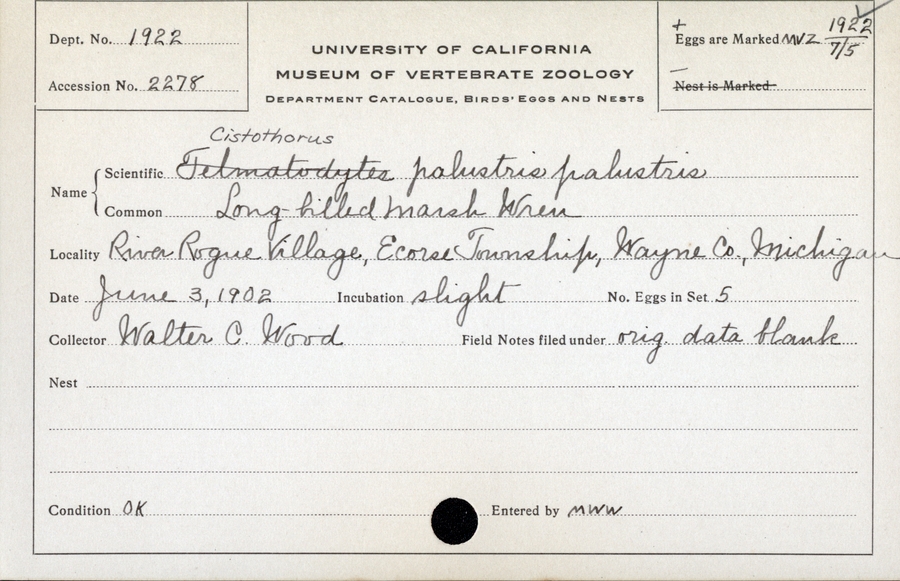 Dept. No. 1922
Accession No. 2278
UNIVERSITY OF CALIFORNIA
MUSEUM OF VERTEBRATE ZOOLOGY
DEPARTMENT CATALOGUE, BIRDS' EGGS AND NESTS
+
Eggs are Marked MVZ 1922
7/5
—
Nest is Marked
Cistothorus
Name { Scientific Telmatodytes palustris palustris
Common Long-billed Marsh Wren
Locality River Rogue Village, Ecorse Township, Wayne Co., Michigan
Date June 3, 1902 Incubation slight No. Eggs in Set 5
Collector Walter C. Wood Field Notes filed under orig. data blank
Nest
Condition OK Entered by MWW